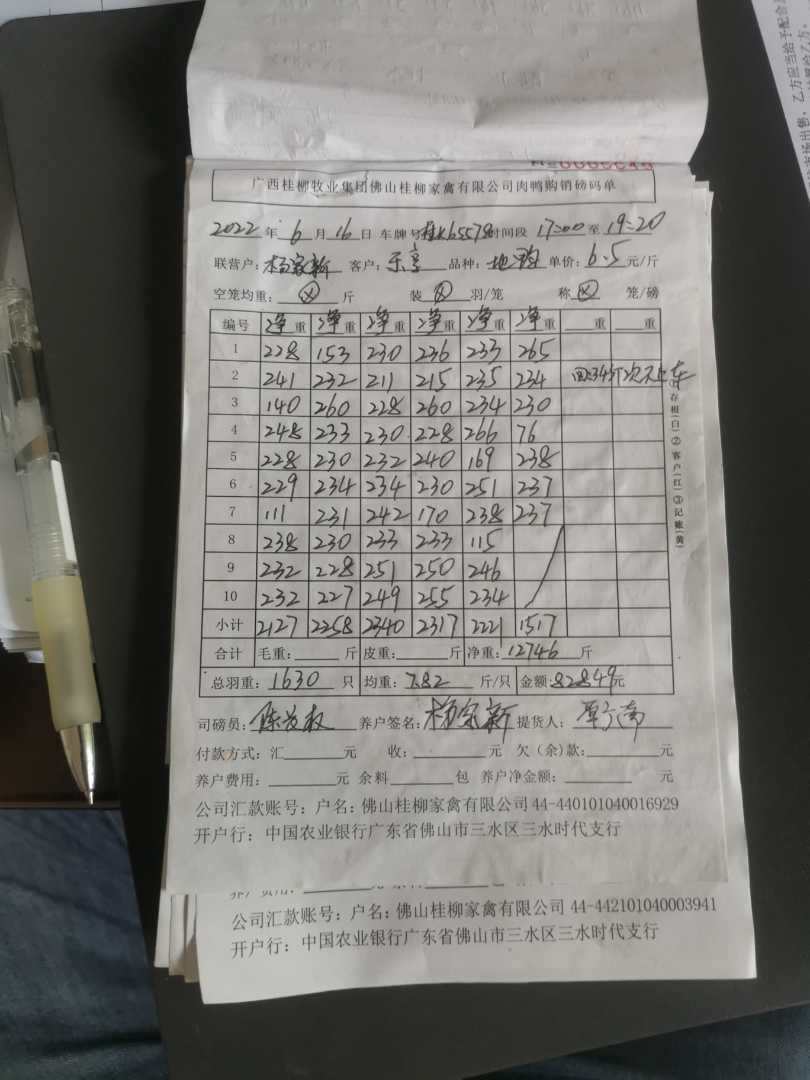 广西桂柳牧业集团佛山桂柳家禽有限公司肉鸭购销磅码单
2022年 6月16日 车牌号桂K65578时间段 17:00至19:20
联营户:杨家新 客户: 品种: 单价:6.5元/斤
空笼均重: 斤 装 羽/笼 称 笼/磅
编号 净重 净重 净重 净重 净重 净重 重 重
1 228 153 230 236 233 265
2 241 232 211 215 235 234
3 140 260 228 260 234 230
4 248 233 230 228 266 76
5 228 230 232 240 169 238
6 229 234 234 230 251 237
7 111 231 242 170 238 237
8 238 230 233 233 115
9 232 228 251 250 246
10 232 227 249 255 234
小计 2127 2258 2340 2317 2221 1517
合计 毛重: 斤 皮重: 斤 净重:12746斤
总羽重:1630只 均重:7.82斤/只 金额:82849元
存根(白)② 客户(红)③ 记账(黄)
司磅员: 养户签名:杨家新 提货人:
付款方式:汇 元 收: 元 欠(余)款: 元
养户费用: 元 余料 包 养户净金额: 元
公司汇款账号:户名:佛山桂柳家禽有限公司44-440101040016929
开户行:中国农业银行广东省佛山市三水区三水时代支行
公司汇款账号:户名:佛山桂柳家禽有限公司 44-442101040003941
开户行:中国农业银行广东省佛山市三水区三水时代支行